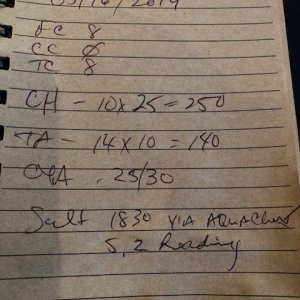 03/16/2019
FC 8
CC 0
TC 8
CH - 10x25=250
TA - 14x10=140
CYA - 25/30
Salt 1830 VIA AQUAChek
5,2 Reading